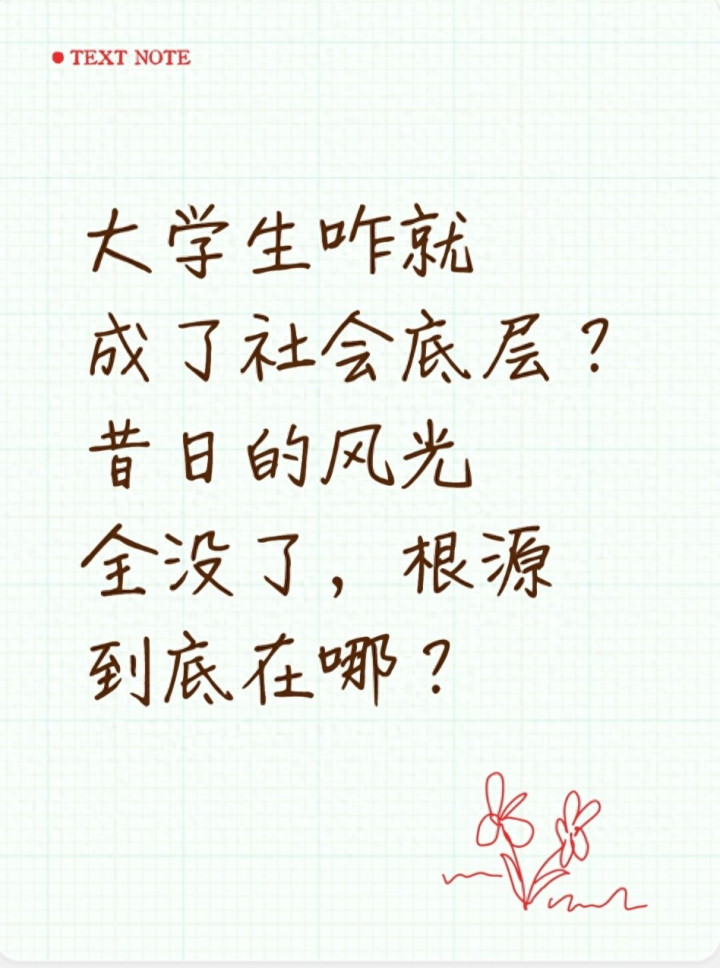 TEXT NOTE
大学生咋就
成了社会底层?
昔日的风光
全没了,根源
到底在哪?